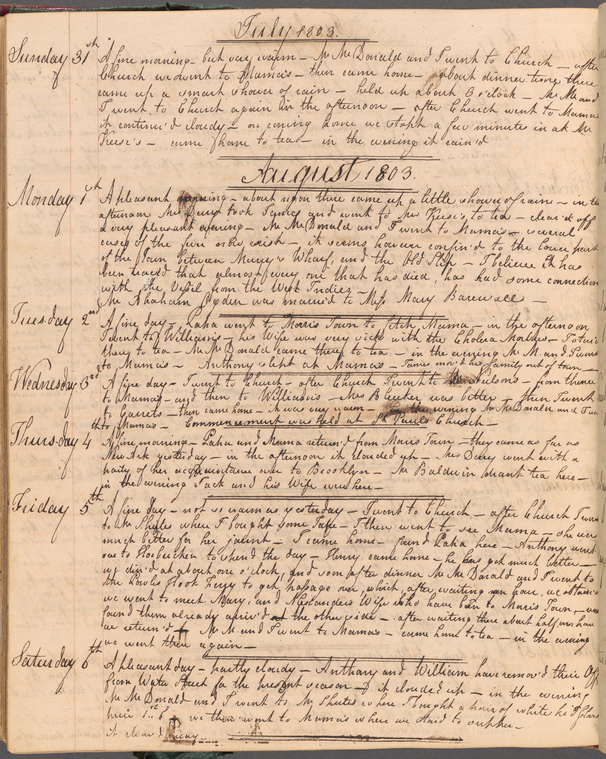 July 1803.
Sunday 31st A fine morning but very warm – Mr McDonald and I went to Church – after
Church we went to Mamas – then came home – about dinner time there
came up a smart shower of rain – held up about 3 o'clock – Mr Mc and
I went to Church again in the afternoon – after Church went to Mamas
it continu'd cloudy – on coming home we stopt a few minutes in at Mr
– came home to tea – in the evening it rain'd
August 1803.
Monday 1st A pleasant morning – about noon there came up a little shower of rain – in the
afternoon Mrs took and went to Mrs to tea – clear'd off
a very pleasant evening – Mr McDonald and I went to Mamas – several
cases of the fever now exist – it seems however confin'd to the lower part
of the Town between Murray's Wharf, and the Old Slip – I believe it has
been traced that almost every one that has died, has had some connection
with the Vessel from the West Indies –
Mr Abraham Ogden was married to Miss Mary Barewall –
Tuesday 2nd A fine day – Papa went to Morris Town to fetch Mama – in the afternoon
I went to Williams – his Wife was very sick with the Cholera Morbus –
there to tea – Mr McDonald came there to tea – in the evening Mr M. and I went
to Mamas – Anthony slept at Mamas – mov'd his family out of town –
Wednesday 3d A fine day – I went to Church – after Church I went to – from thence
to Mamas – and then to Williams – Mrs B was better – then I went
to Garrets – then came home – it was very warm – in the evening Mr McDonald and I was
at Mamas – Commencement was held at St Pauls Church –
Thursday 4th A fine morning – Papa and Mama return'd from Morris Town – they came as far as
New Ark yesterday – in the afternoon it clouded up – Mrs went with a
party of her acquaintance over to Brooklyn – Mr Baldwin drank tea here –
in the evening Jack and his Wife were here –
Friday 5th A fine day – not so warm as yesterday – I went to Church – after Church I went
to Mr where I bought some – I then went to see Mama – she is
much better for her jaunt – I came home – found Papa here – Anthony went
over to Hoebuchen to spend the day – Henry came home – he has got much better –
we din'd at about one o'clock, and soon after dinner Mr McDonald and I went to
the Powles Hook Ferry to get passage over, which, after waiting an hour, we obtain'd
we went to meet Mary, and Alexanders Wife who have been to Morris Town – we
found them already arriv'd at the other side – after waiting there about half an hour
we return'd – Mr M and I went to Mamas – came home to tea – in the evening
we went there again –
Saturday 6th A pleasant day – partly cloudy – Anthony and William have remov'd their
from Water Street for the present season – it clouded up – in the evening
Mr McDonald and I went to Mr where I bought a pair of white
– we then went to Mamas where we staid to supper –
it clear'd away –